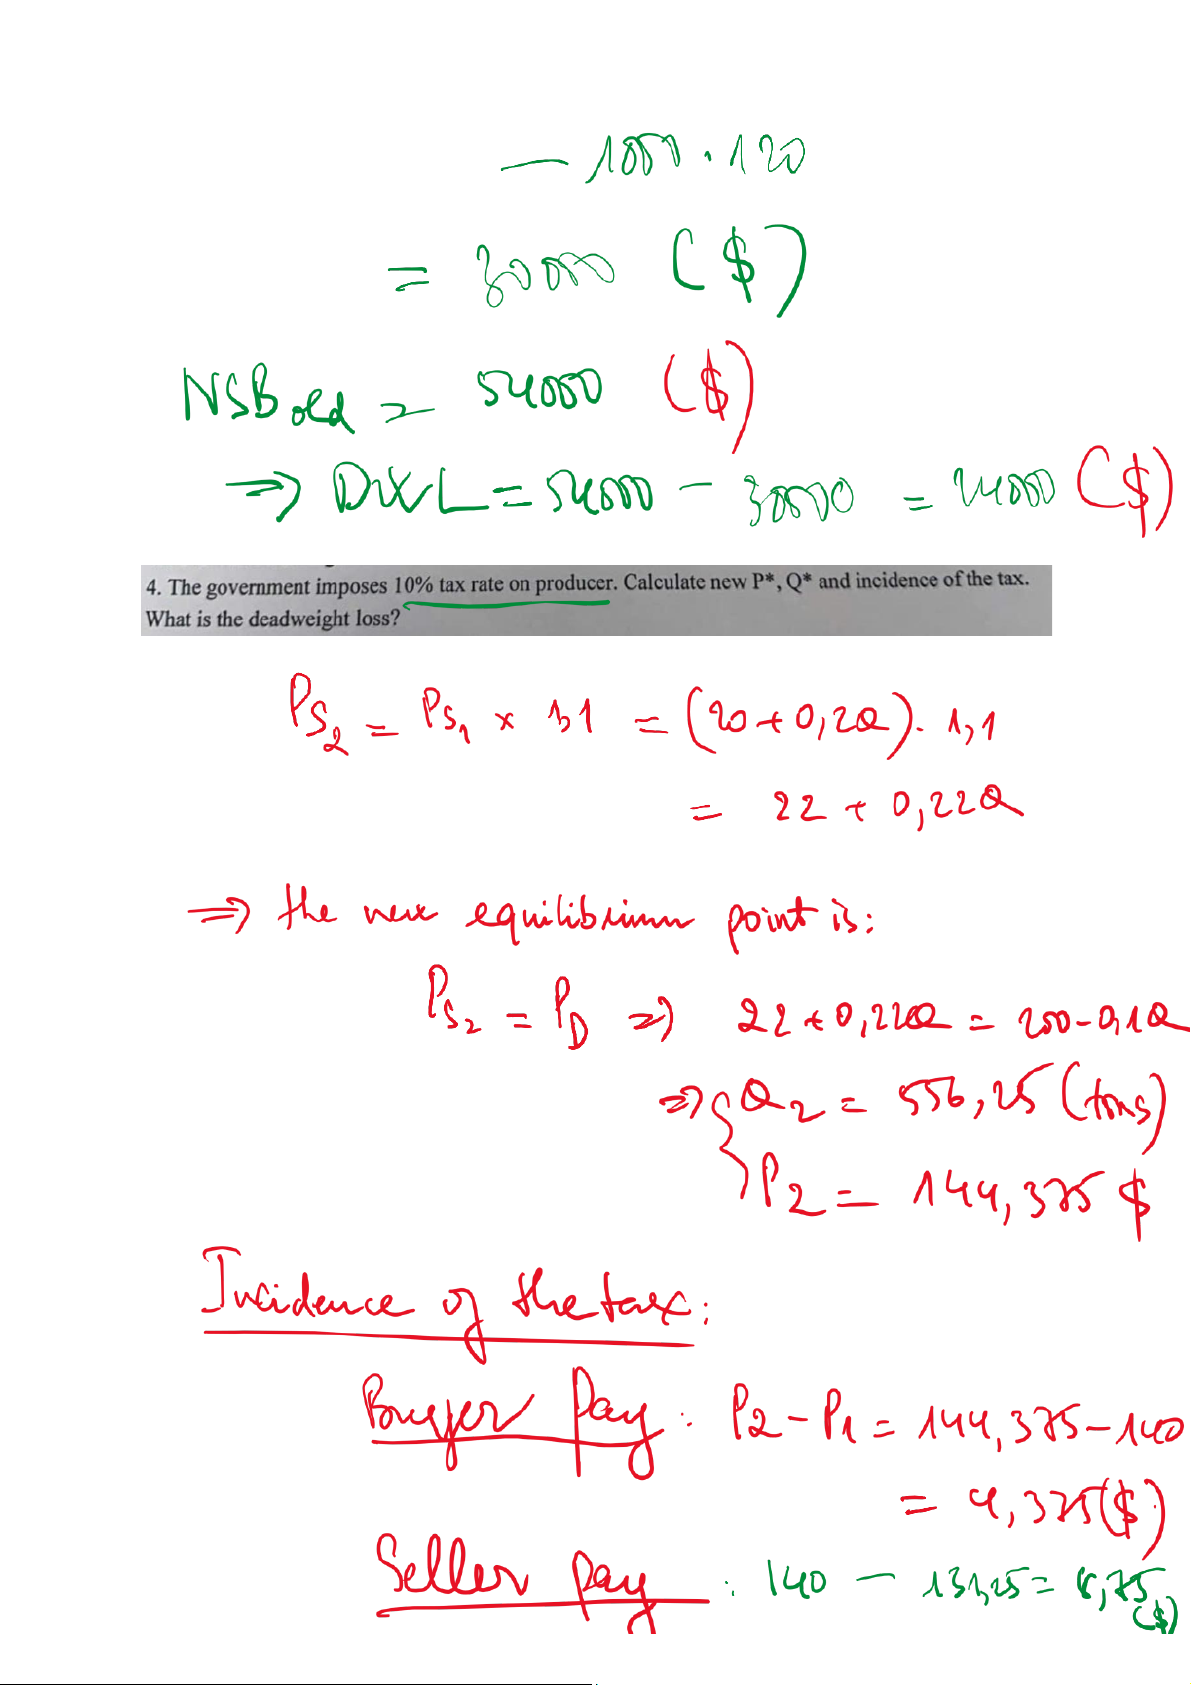 — 1000 . 120
= 30000 ($)
NSB old = 54000 ($)
=> DWL = 54000 - 30000 = 24000 ($)
4. The government imposes 10% tax rate on producer. Calculate new P*, Q* and incidence of the tax.
What is the deadweight loss?
PS2 = PS1 x 1,1 = (20 + 0,2Q). 1,1
= 22 + 0,22Q
=> the new equilibrium point is:
PS2 = PD => 22 + 0,22Q = 200 - 0,1Q
=> { Q2 = 556,25 (tons)
P2 = 144,375 $
Incidence of the tax:
Buyer pay : P2 - P1 = 144,375 - 140
= 4,375 ($)
Seller pay : 140 - 131,25 = 8,75 ($)